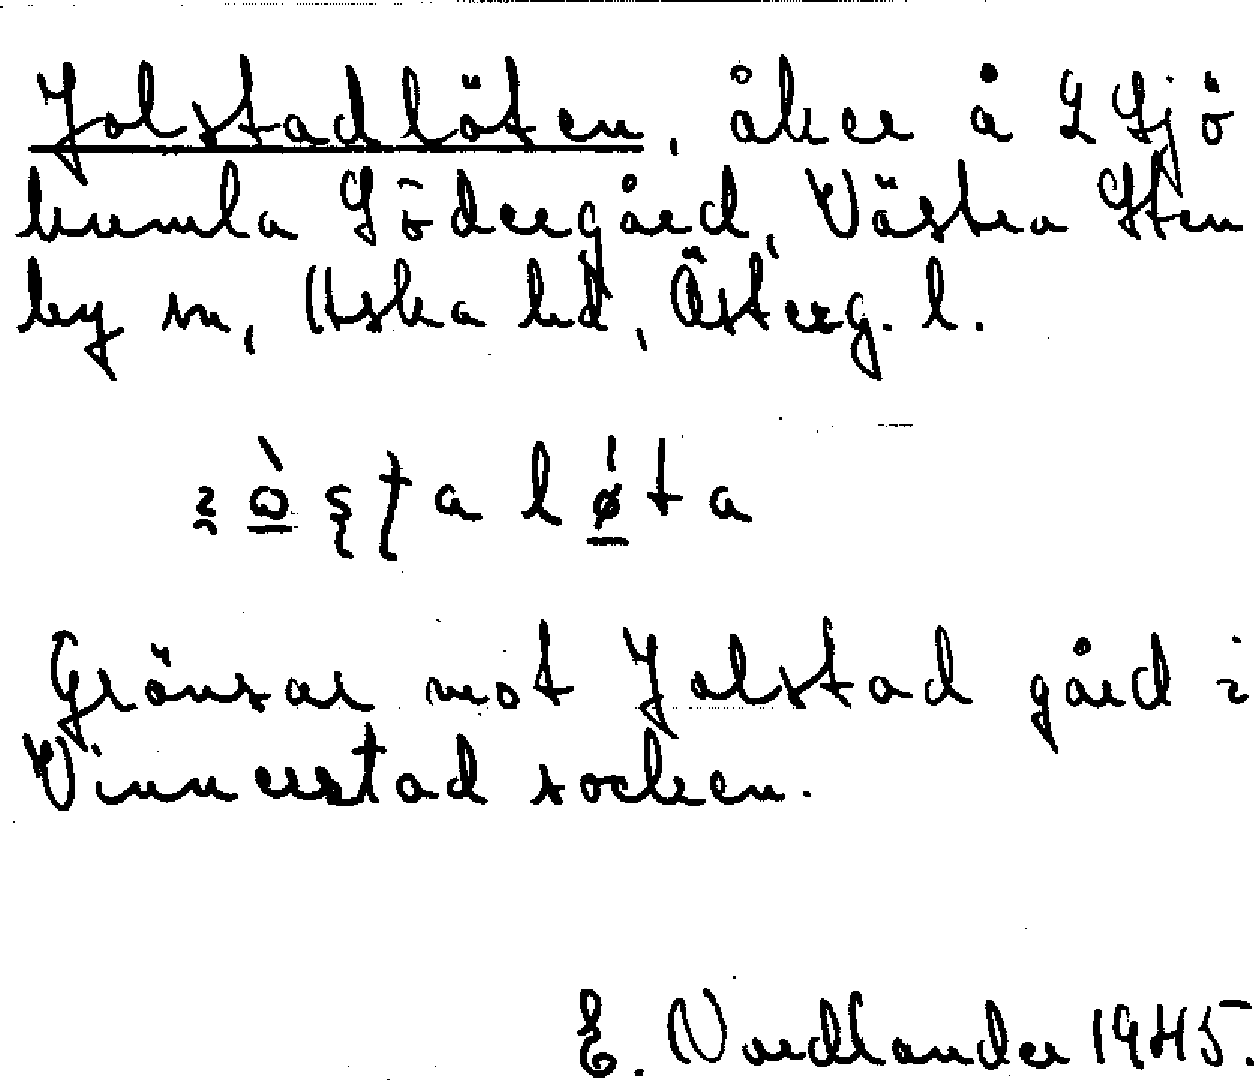 Jolstadlöten, åker å 2 Sjö
kumla Södergård, Västra Sten
by sn, Aska hd, Österg. l.
lǿ̲ta
Gränsar mot Jolstad gård i
Vinnerstad socken.
E. Nordlander 1945.